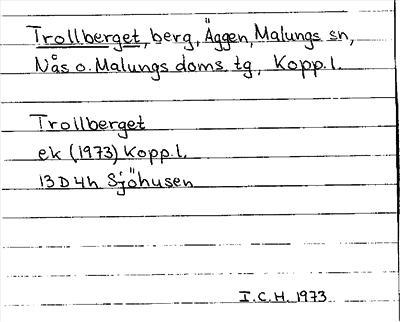 Trollberget, berg, Äggen, Malungs sn,
Nås o. Malungs doms. tg, Kopp. l.
Trollberget
ek (1973) Kopp. l.
13 D 4h Sjöhusen
I. C. H. 1973